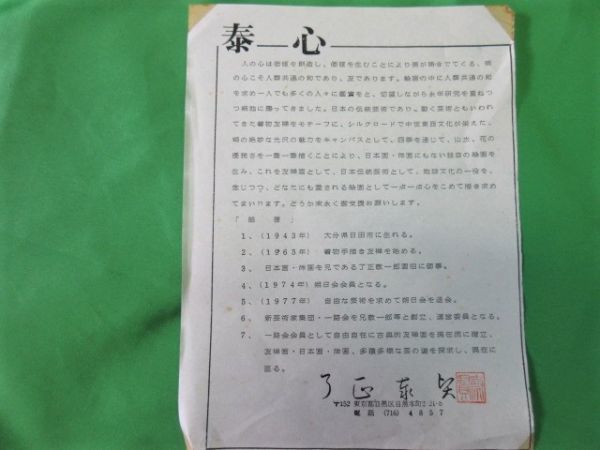 泰心
人の心は価値を創造し、価値を生むことにより美が誇きでてくる、美
の心こそ人類共通の和であり、友であります。絵画の中に人類共通の和
を求め一人でも多くの人々に鑑賞をと、切望しながら永年研究を重ねつ
つ統治に勝ってきました。日本の伝統芸術であり、動く芸術ともいわれ
てきた着物友禅をモチーフに、シルクロードで中世東西文化が栄えた、
絹の絶妙な光沢の魅力をキャンバスとして、四季を通じて、山水、花の
優雅さを一筆一筆描くことにより、日本画・洋画にもない独自の絵画を
生み、これを友禅画として、日本伝統芸術として、地球文化の一役を、
信じつつ、どなたにも愛される絵画として一点一点心をこめて描き求め
てまいります。どうか末永く御支援お願いします。
「略歴」
1、（1943年） 大分県日田市に生れる。
2、（1963年） 着物手描き友禅を始める。
3、日本画・洋画を兄である了正敬一郎画伯に師事。
4、（1974年）朔日会会員となる。
5、（1977年） 自由な芸術を求めて朔日会を退会。
6、新芸術家集団・一路会を兄敬一郎等と創立、運営委員となる。
7、一路会会員として自由自在に古典的友禅画を現在流に確立、
友禅画・日本画・洋画、多種多様な画の道を探求し、現在に
至る。
了正泰
〒152 東京都目黒区目黒本町2-21-5
電話 (716) 4857